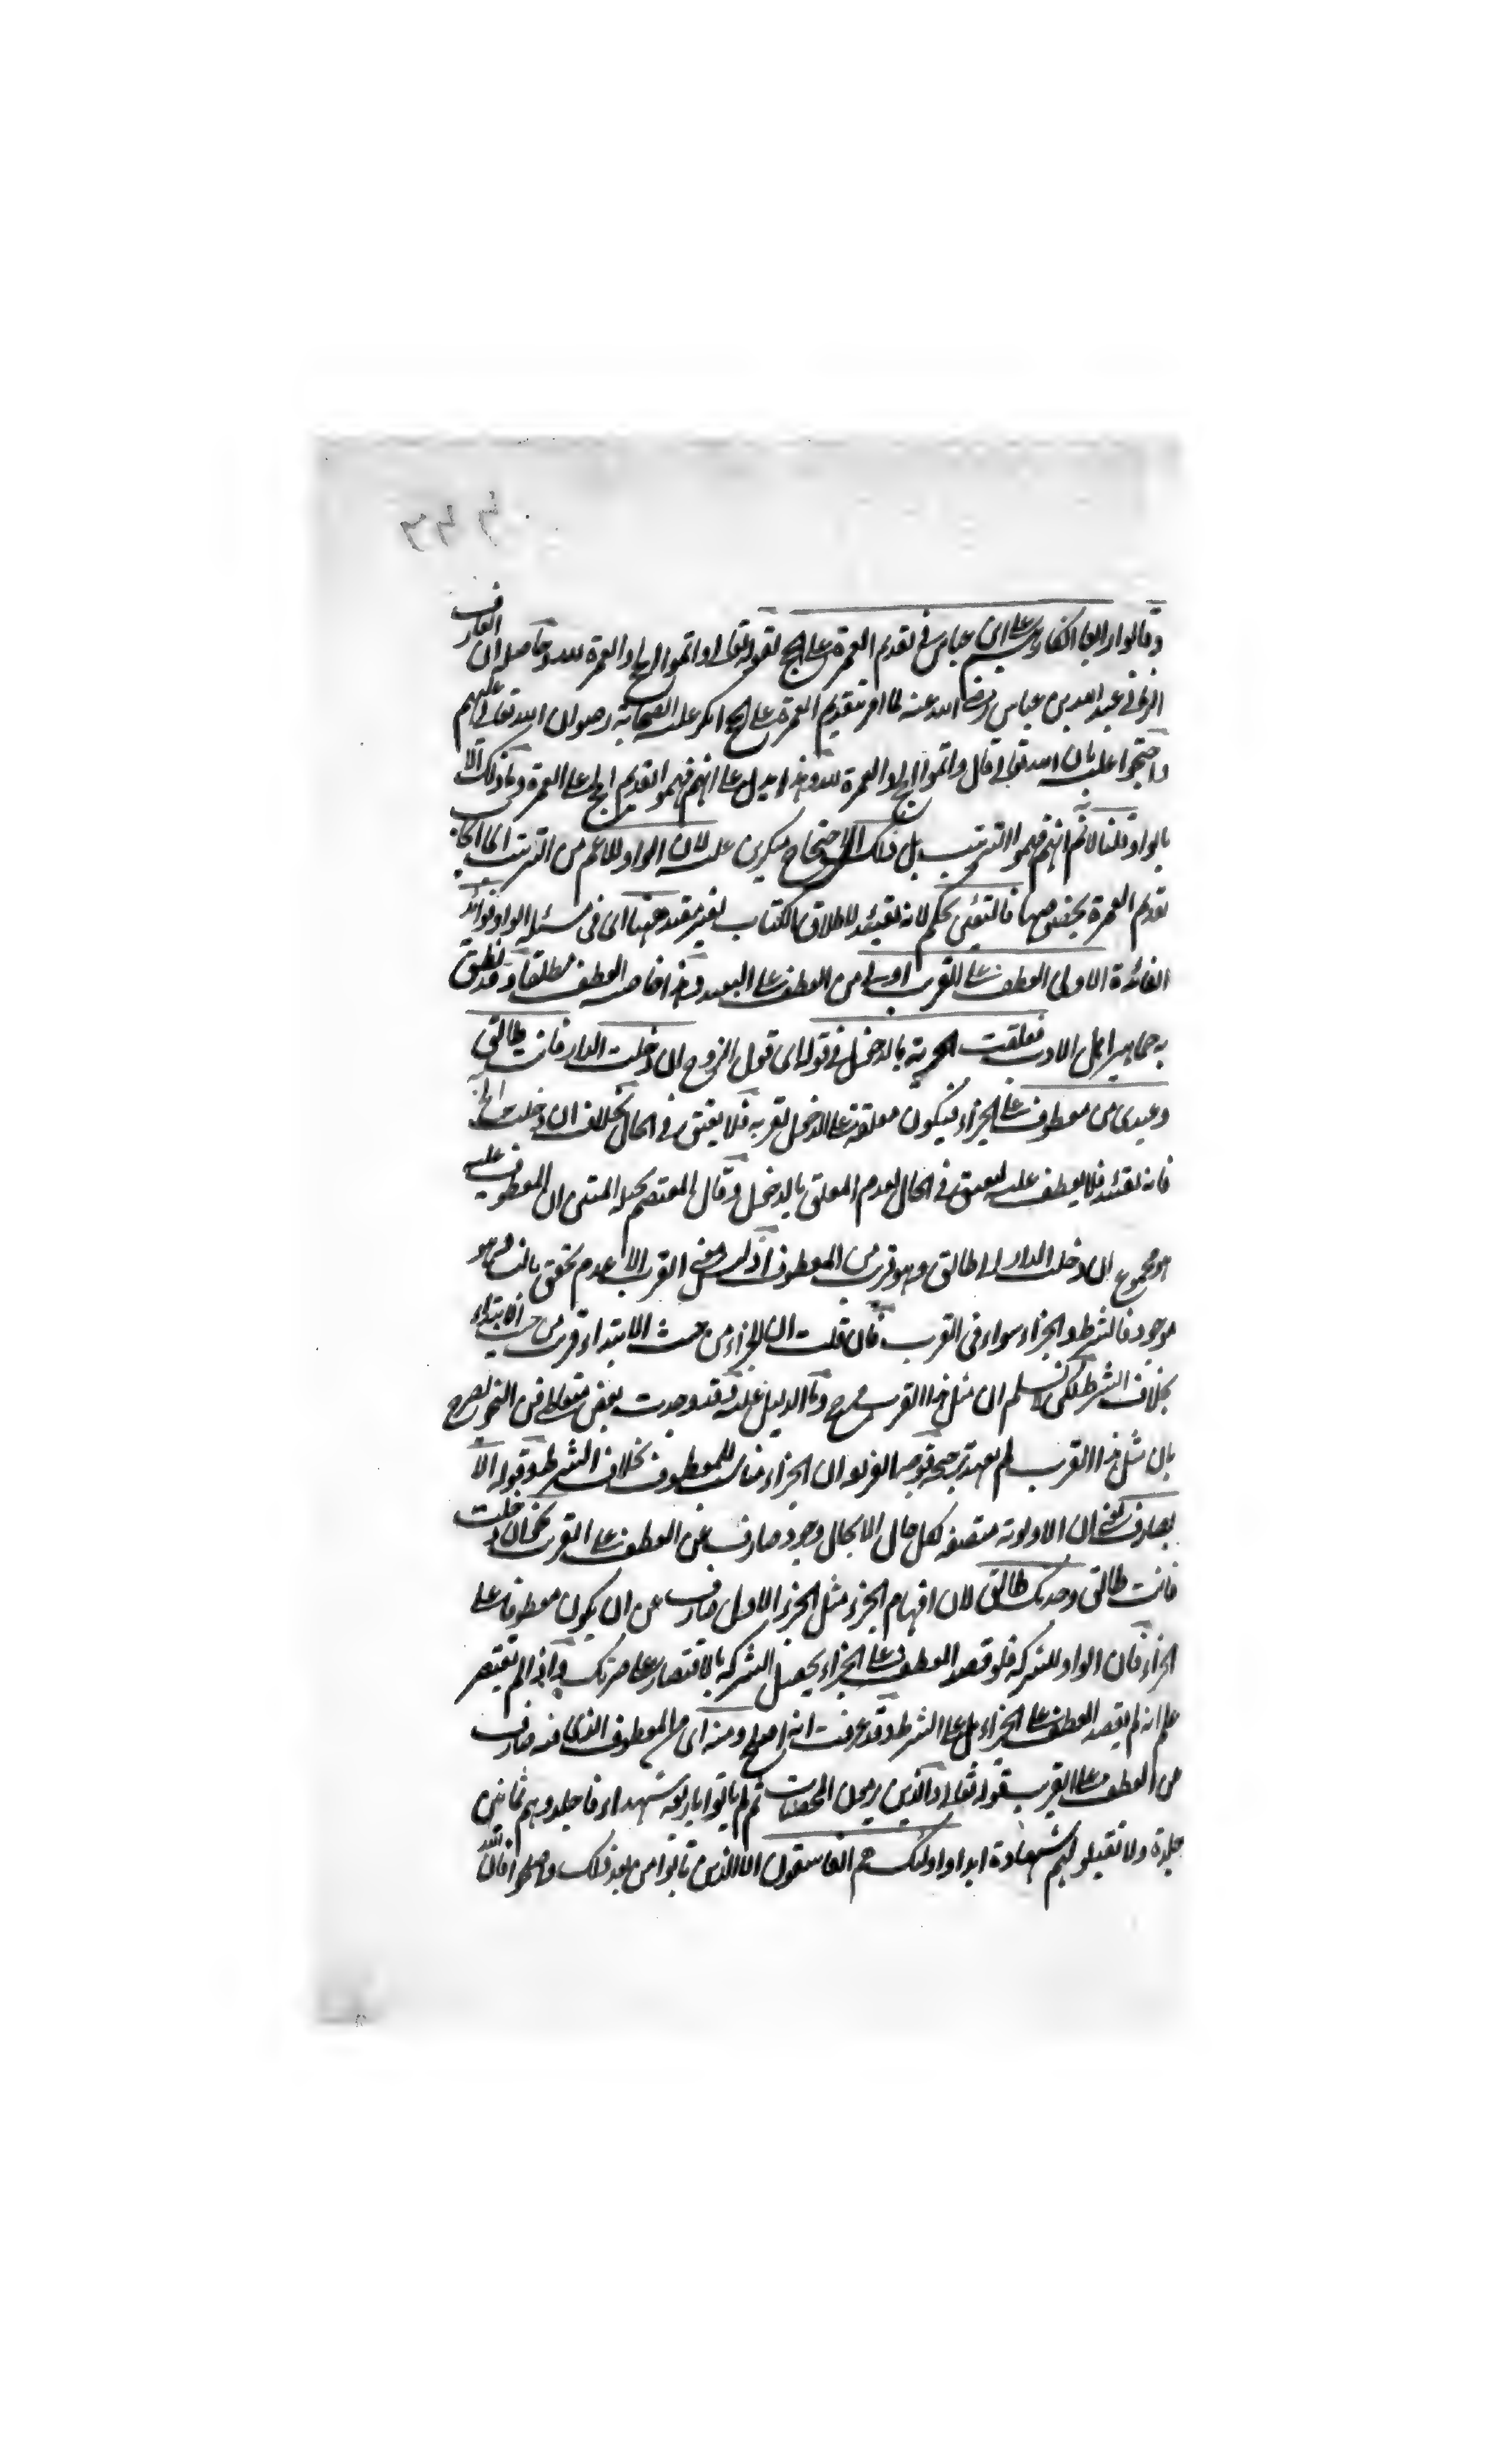 وقالوا رابعا انكارهم على ابن عباس في تقديم العمرة على الحج لقوله تعالى واتموا الحج والعمرة لله وحاصله ان العارف
الرباني عبد الله بن عباس رضي الله عنه لما امر بتقديم العمرة على الحج انكر عليه الصحابة رضوان الله تعالى عليهم
واحتجوا عليه بان الله تعالى قال واتموا الحج والعمرة لله وهذا يدل على انهم فهموا تقديم الحج على العمرة وما ذلك الا
بالواو قلنا لا نم انهم فهموا الترتيب بل ذلك الاحتجاج منكرين عليه لان الواو للاعم من الترتيب
تقديم العمرة بخصوصها فالتعيين تحكم لانه تقييد لاطلاق الكتاب بغير مقيد ههنا اى فى مسئلة الواو فوائد
الفائدة الاولى العطف على القريب اولى من العطف على البعيد وهذا خاصة العطف مطلقا وقد نطق
به جماهير اهل الادب فعلقت الحرية بالدخول في قوله اى قول الزوج ان دخلت الدار فانت طالق
وعبدى حر معطوف على الجزاء فيكون معلقة على الدخول لقربه فلا يعتق في الحال بخلاف ان دخلت الخ
فانه تقييد فلا يعطف عليه فيعتق في الحال لعدم المعلق بالدخول وقال المعتصم بحبله المتين ان المعطوف عليه
هو مجموع ان دخلت الدار الى طالق وهو قريب من المعطوف اذ ليس معنى القرب الا عدم تحقق فاصل وهو
موجود فالشرط والجزاء سواء فى القرب فان قلت ان الجزاء من حيث الابتداء قريب من حيث الابتداء
بخلاف الشرط لكن لا نسلم ان مثل هذا القرب مرجح وما الدليل عليه وقد وجدت بعض متعاطى فن النحو يصرح
بان مثل هذا القرب لم يعهد ترجيحه فوجه الاولوية ان الجزاء مناسب للمعطوف بخلاف الشرط وقوله الا
بصارف يعنى ان الاولوية متصفة لكل حال الا بحال وجود صارف عن العطف على القريب نحو ان دخلت
فانت طالق وضرتك طالق لان افهام الجزء مثل الجزء الاول صارف عن ان يكون معطوفا على
الجزاء فان الواو للشركة فلو قصد العطف على الجزاء يحصل الشركة بالاقتصار على ضرتك واذا لم يقتصر
علم انه لم يقصد العطف على الجزاء بل على الشرط وقد عرفت انه اصلح ومنه اى من المعطوف الذى فيه صارف
عن العطف على القريب قوله تعالى والذين يرمون المحصنات ثم لم ياتوا باربعة شهداء فاجلدوهم ثمانين
جلدة ولا تقبلوا لهم شهادة ابدا واولئك هم الفاسقون الا الذين تابوا من بعد ذلك واصلحوا فان الله